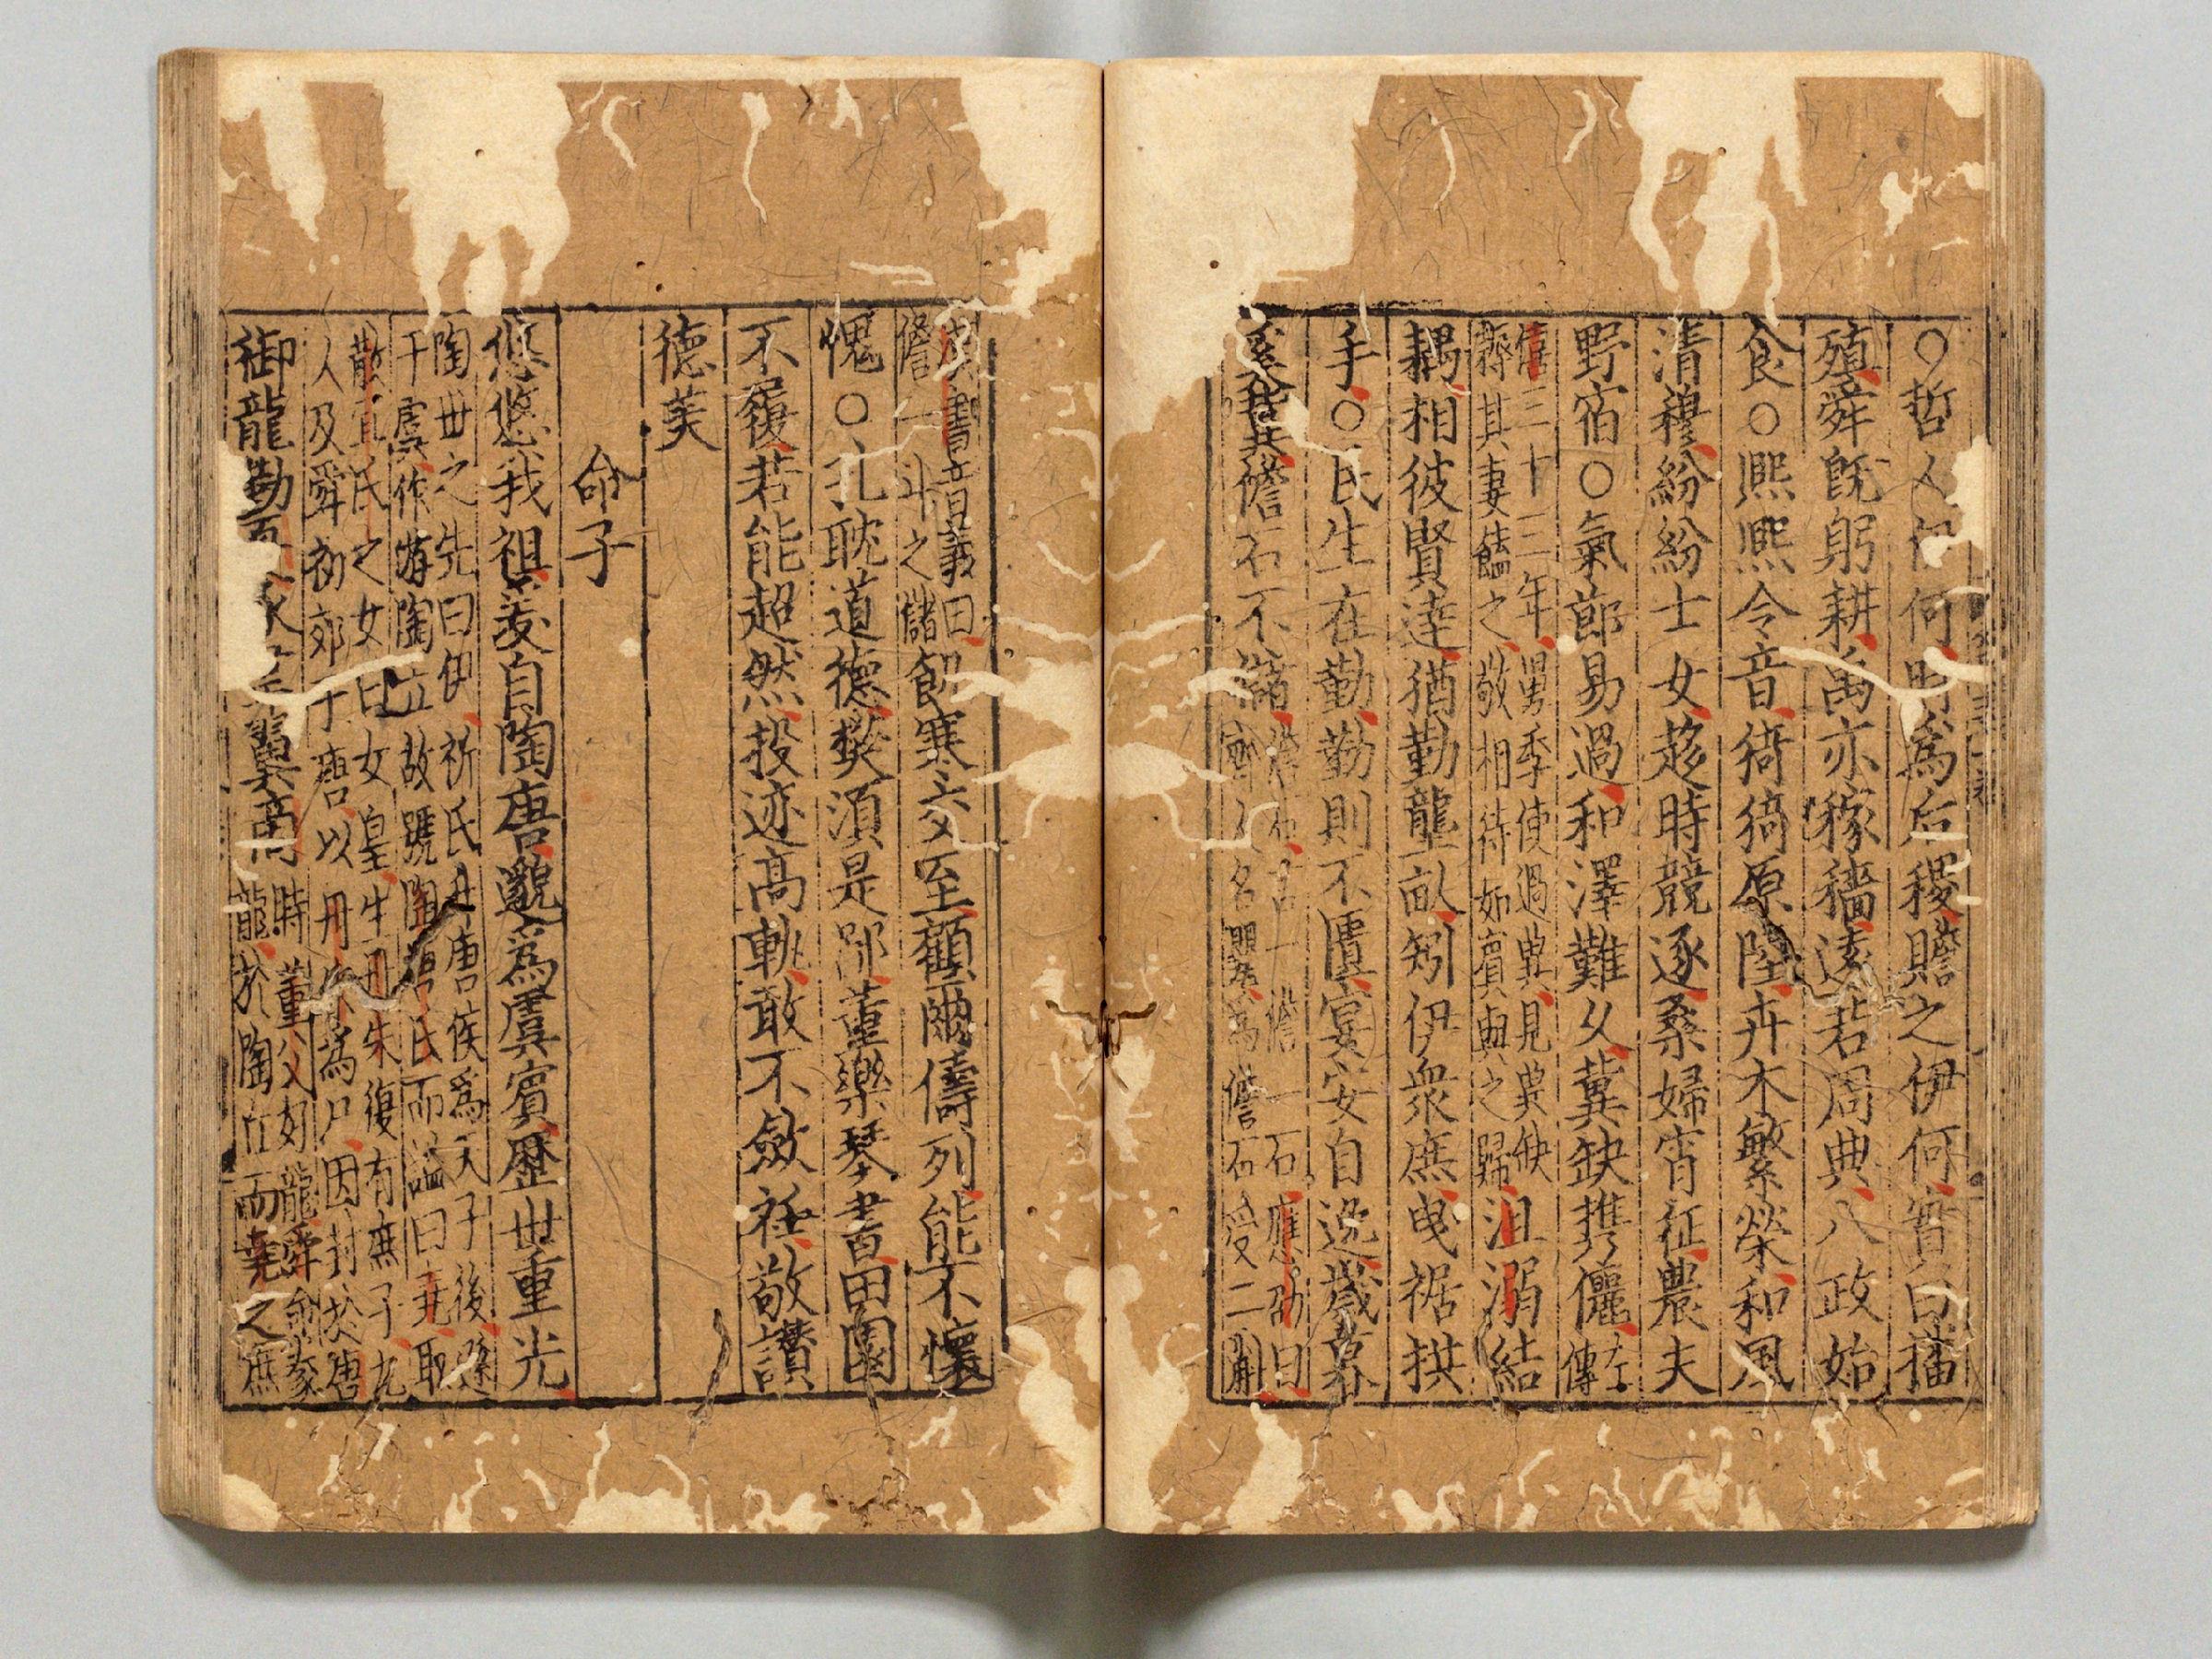 ○哲人伊何時爲后稷贍之伊何實曰播
殖舜旣躬耕禹亦稼穡遠若周典八政始
食○熙熙令音猗猗原陸卉木繁榮和風
清穆紛紛士女趍時競逐桑婦宵征農夫
野宿○氣節易過和澤難久冀缺携儷左傳
僖三十三年臼季使過冀見冀缺
耨其妻饁之敬相待如賓與之歸沮溺結
耦相彼賢達猶勤壟畝矧伊衆庶曳裾拱
手○民生在勤勤則不匱宴安自逸歲暮
奚冀儋石不儲
一儋一石應劭曰
齊人名罌爲儋石受二斛
漢書音義曰
儋一斗之儲飢寒交至顧爾儔列能不懷
愧○孔耽道德樊須是鄙董樂琴書田園
不履若能超然投迹高軌敢不斂衽敬讃
德美
命子
悠悠我祖爰自陶唐邈爲虞賓歷世重光
陶世之先曰伊祈氏升唐侯爲天子後遜
于虞作游陶立故號陶唐氏而謚曰堯取
散宜氏之女曰女皇生丹朱復有庶子九
人及舜初郊于唐以丹朱爲尸因封於唐
御龍勤夏豕韋翼商
時董父好龍舜命豢
龍於陶丘而堯之庶